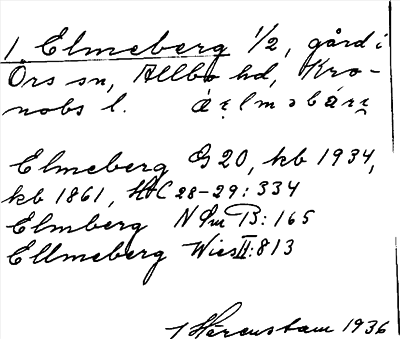 1 Elmeberg 1/2, gård i
Örs sn, Allbo hd, Kro-
nobs l.
Elmeberg G 20, kb 1934,
kb 1861, HC 28-29: 334
Elmberg N Sm B: 165
Ellmeberg Wies II: 813
Härenstam 1936